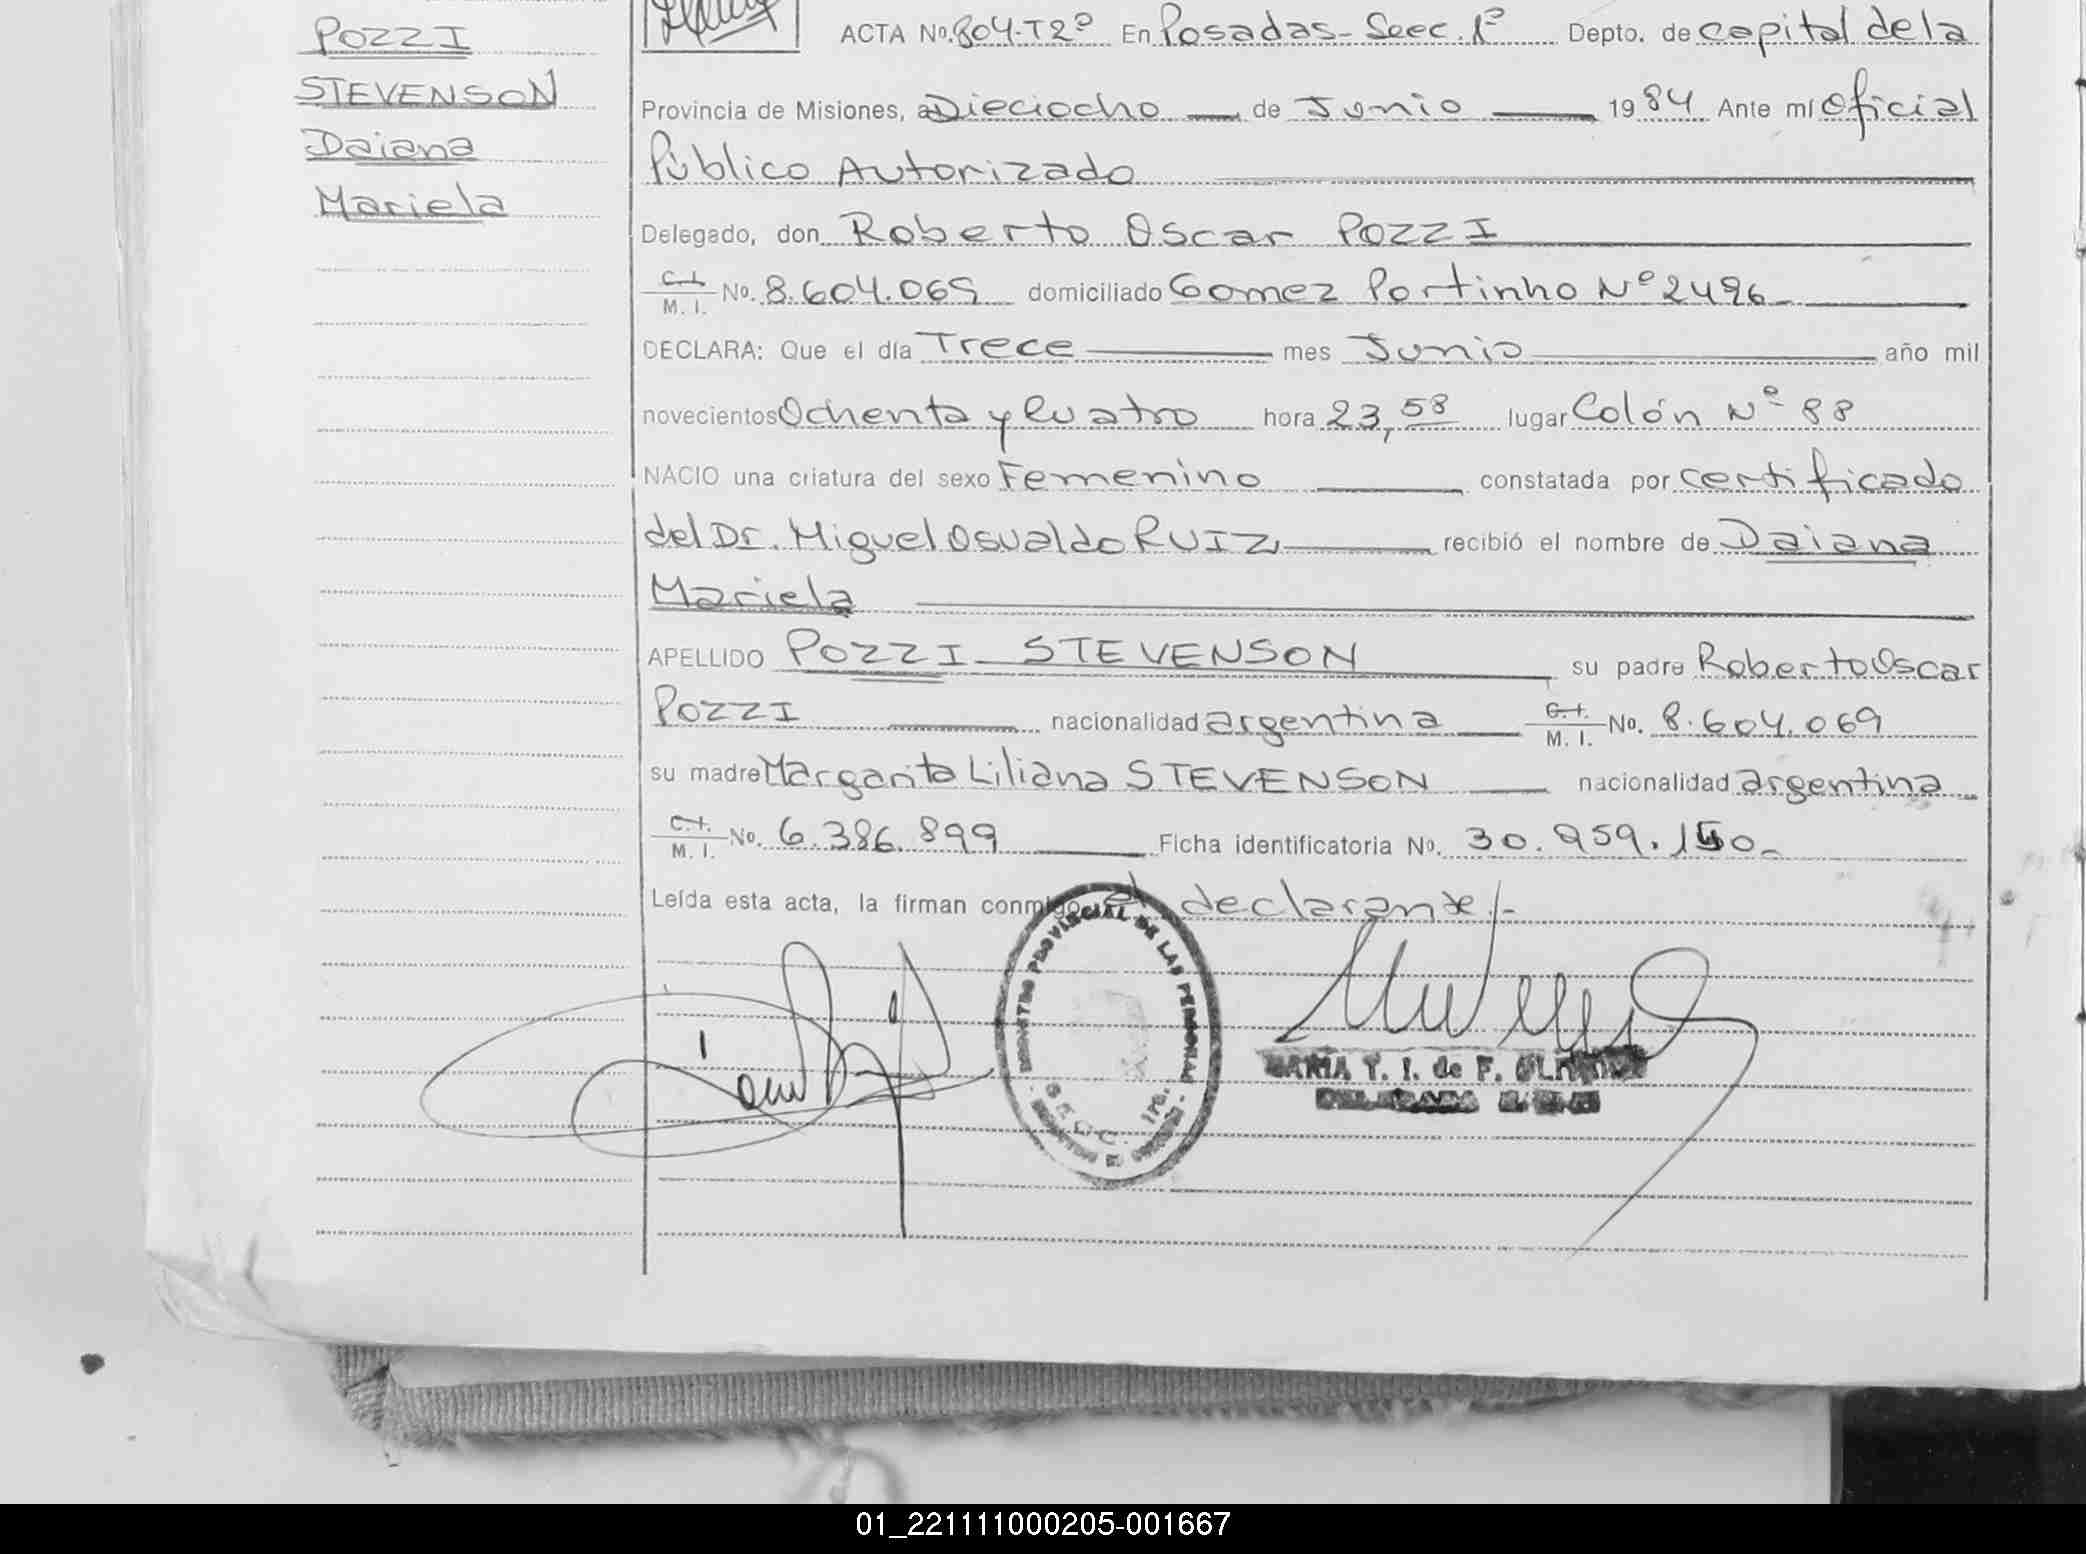 POZZI
STEVENSON
Daiana
Mariela
ACTA Nº. 804-T2º En Posadas- Secc. 1ª Depto. de capital de la
Provincia de Misiones, a Dieciocho de Junio 1984 Ante mí Oficial
Público Autorizado
Delegado, don Roberto Oscar POZZI
C.I. M. I. Nº. 8.604.069 domiciliado Gomez Portinho Nº 2496
DECLARA: Que el día Trece mes Junio año mil
novecientos Ochenta y Cuatro hora 23,58 lugar Colón Nº 88
NACIO una criatura del sexo Femenino constatada por certificado
del Dr. Miguel Osvaldo RUIZ recibió el nombre de Daiana
Mariela
APELLIDO POZZI STEVENSON su padre Roberto Oscar
POZZI nacionalidad argentina C.I. M. I. Nº. 8.604.069
su madre Margarita Liliana STEVENSON nacionalidad argentina
C.I. M. I. Nº. 6.386.899 Ficha identificatoria Nº. 30.959.
Leída esta acta, la firman conmigo el declarante.-
REGISTRO PROVINCIAL DE LAS PERSONAS
SECC. 1ra.
MARIA T. I. de F.
01_221111000205-001667